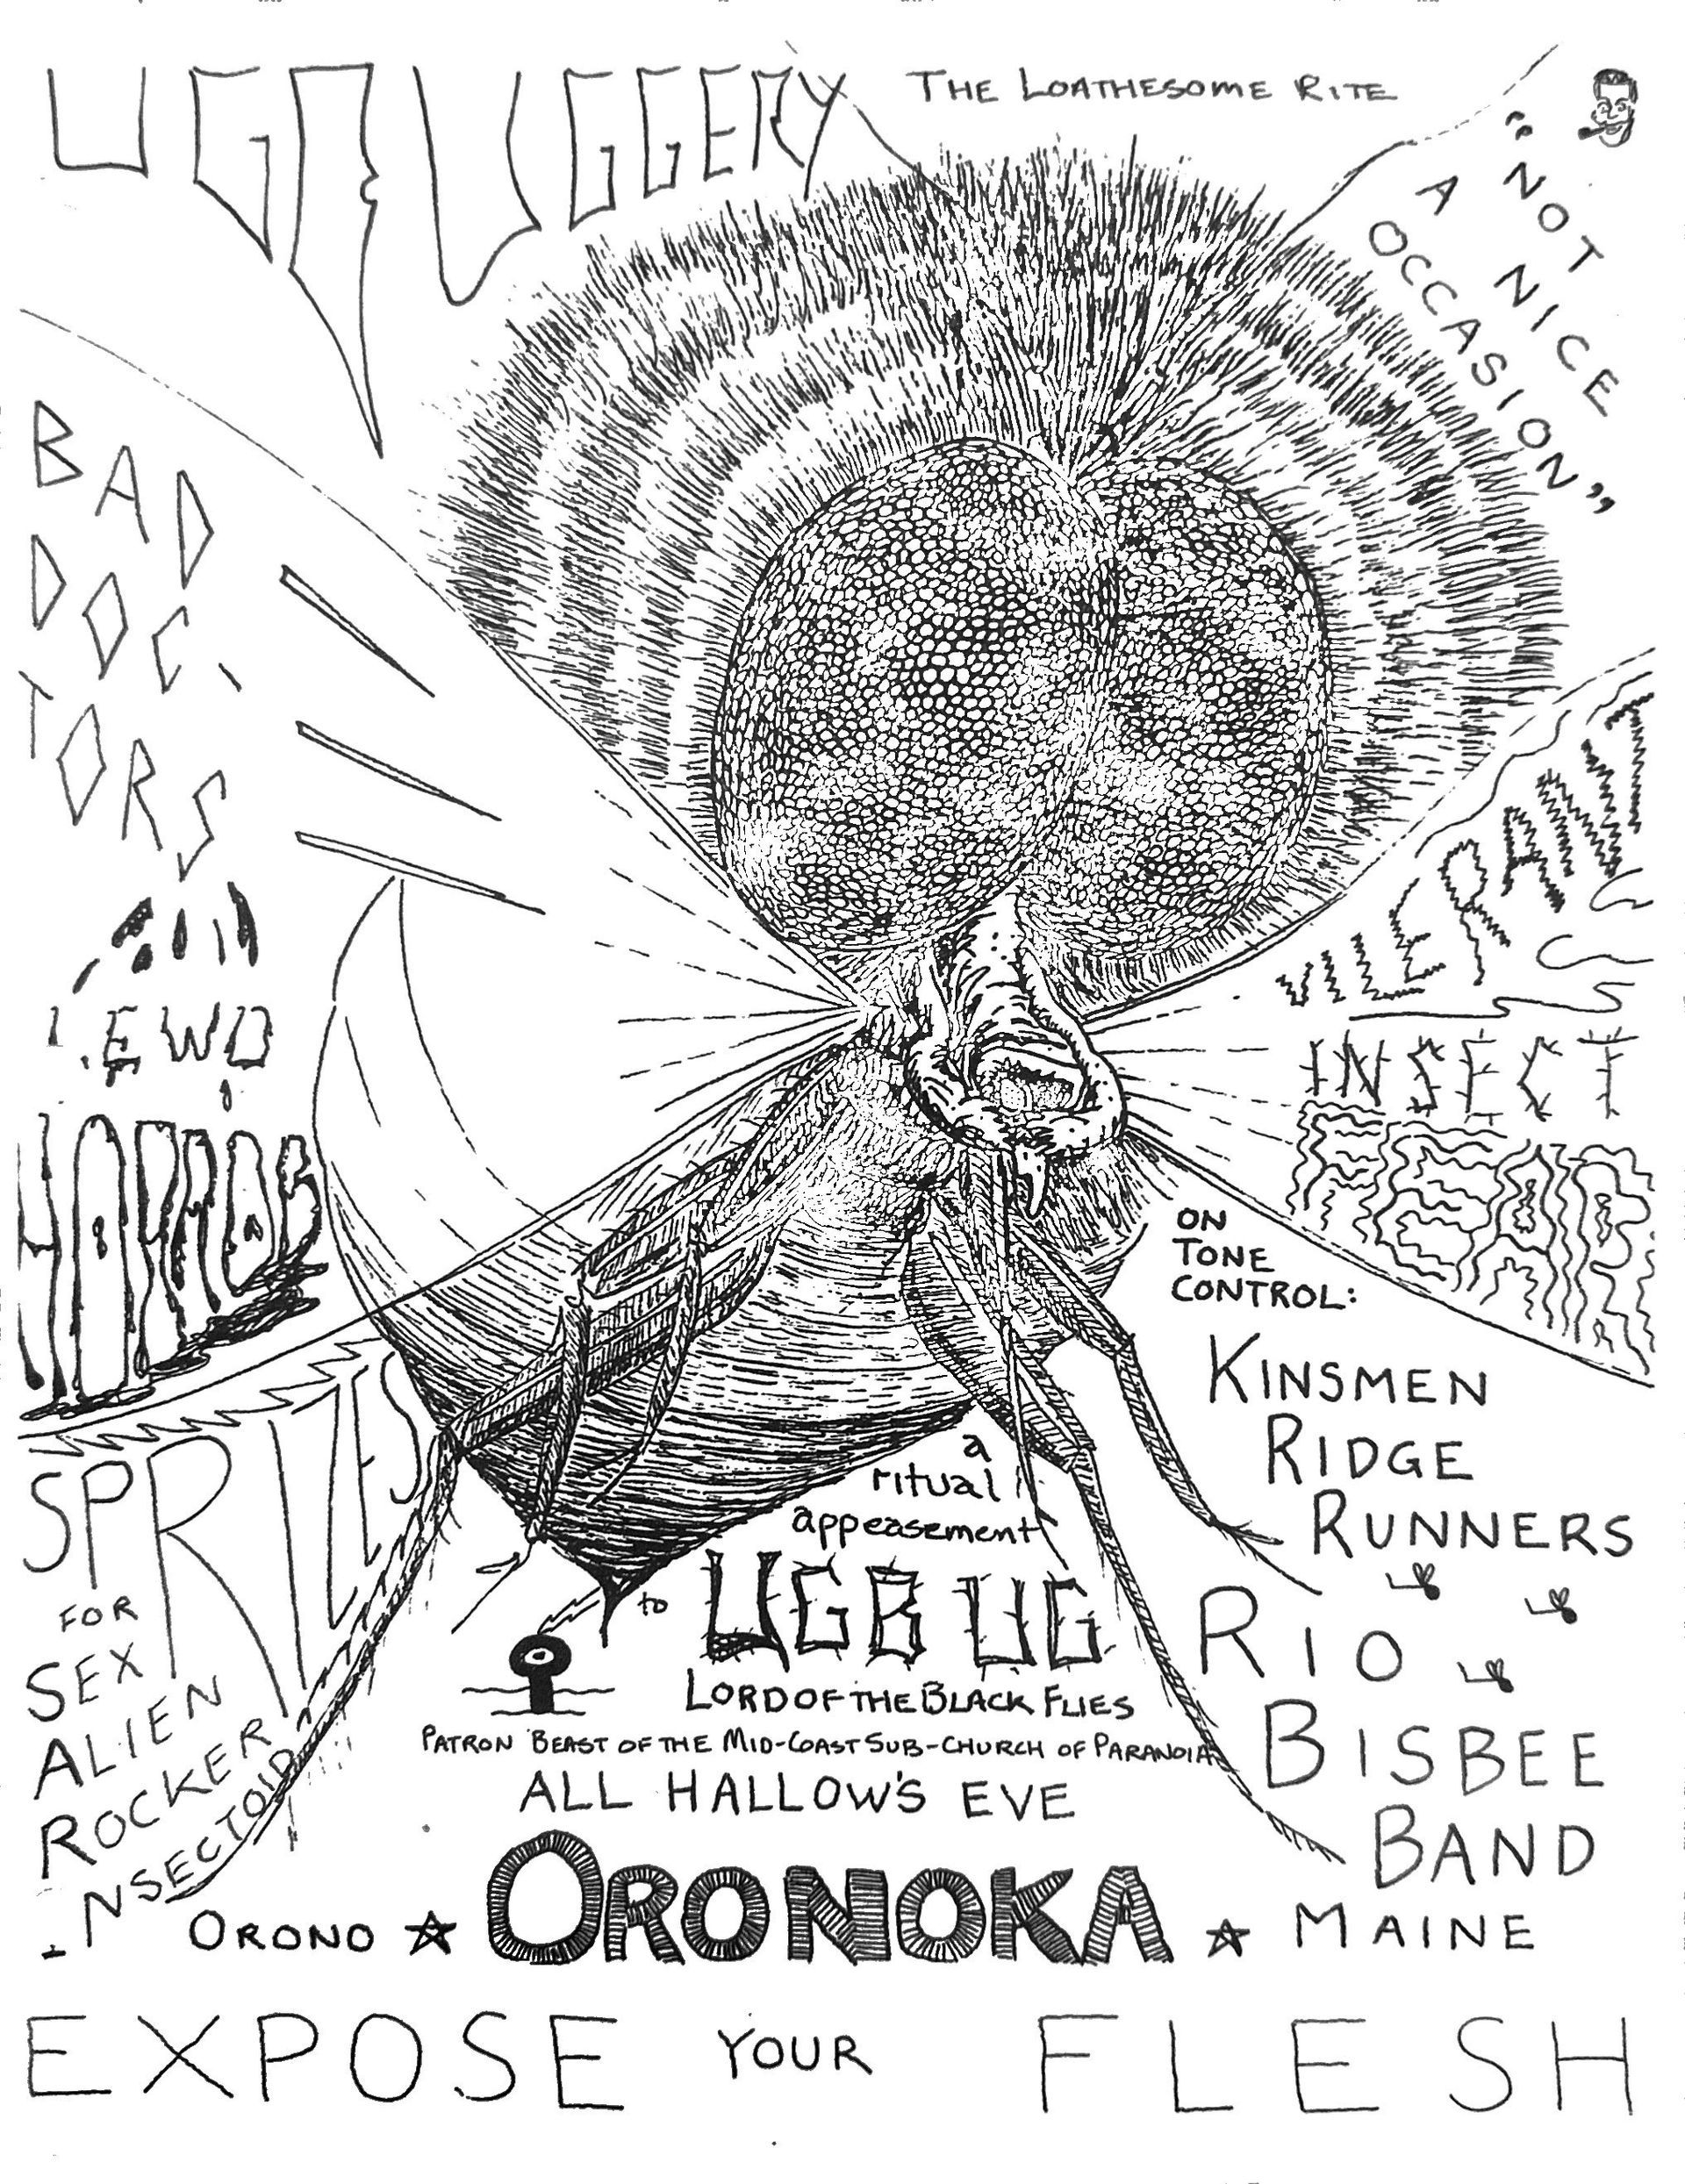 UGRUGGERY
THE LOATHESOME RITE
"NOT
A NICE
OCCASION"
BAD
DOC
TORS
LEWD
VILE RANT
INSECT
FEAR
ON
TONE
CONTROL:
KINSMEN
RIDGE
RUNNERS
RIO
BISBEE
BAND
SPRIZES
FOR
SEX
ALIEN
ROCKER
INSECTOID
a
ritual
appeasement
to UGBUG
LORD OF THE BLACK FLIES
PATRON BEAST OF THE MID-COAST SUB-CHURCH OF PARANOIA
ALL HALLOW'S EVE
ORONO ORONOKA MAINE
EXPOSE YOUR FLESH